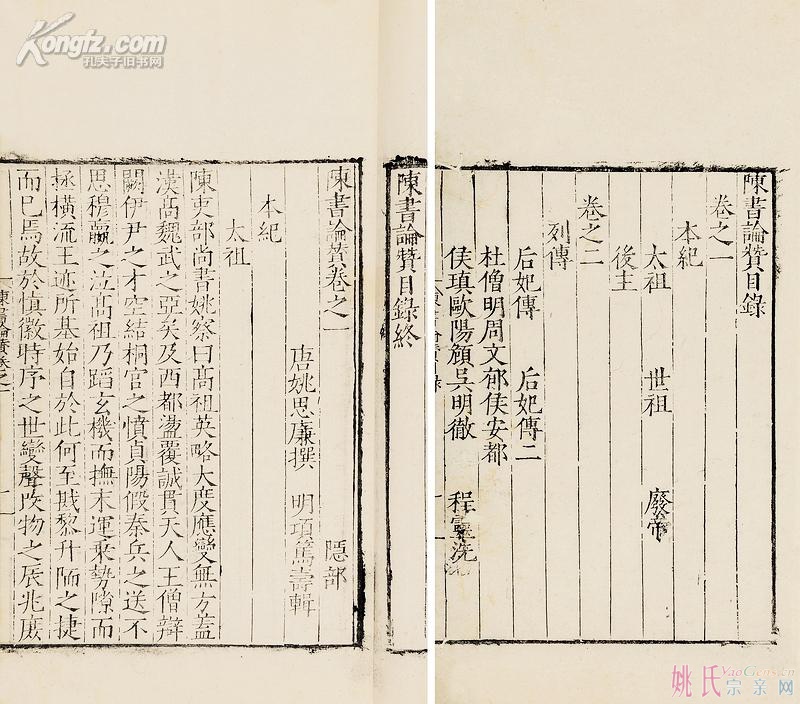 陳書論贊目錄
卷之一
本紀
太祖 世祖 廢帝
後主
卷之二
列傳
后妃傳 后妃傳二
杜僧明周文郁侯安都
侯瑱歐陽頠吳明徹 程靈洗
陳書論贊目錄終
陳書論贊卷之一 隱部
唐姚思廉撰 明項篤壽輯
本紀
太祖
陳吏部尚書姚察曰髙祖英略大度應變無方蓋
漢髙魏武之亞矣及西都盪覆誠貫天人王僧辯
闕伊尹之才空結桐宫之憤貞陽假秦兵之送不
思穆嬴之泣髙祖乃蹈玄機而撫末運乘勢隙而
拯橫流王迹所基始自於此何至戡黎升陑之捷
而已焉故於慎徽時序之世變聲改物之辰兆庻
陳書論贊卷之一
Kongfz.com
孔夫子旧书网
姚氏宗亲网